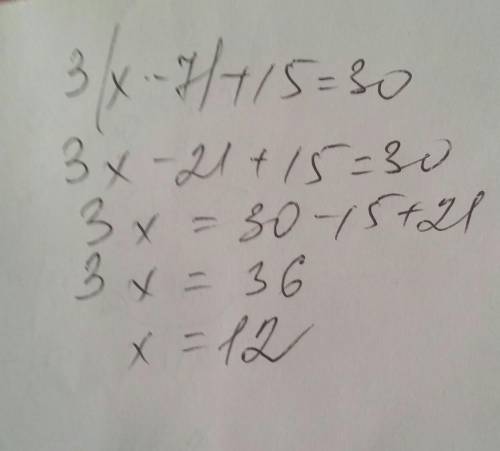 3(x-7)+15=30
3x-21+15=30
3x=30-15+21
3x=36
x=12